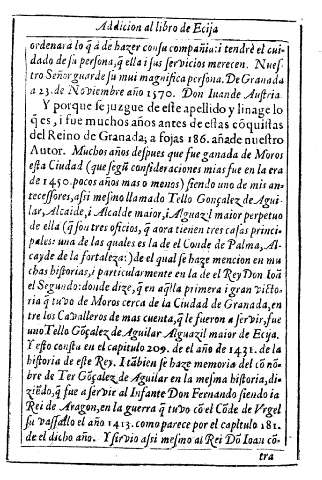 Addicion al libro de Ecija
ordenarà lo q̃ à de hazer con su compañia: i tendrè el cui-
dado de su persona, q̃ ella i sus servicios merecen. Nues-
tro Señor guarde su mui magnifica persona. De Granada
a 23. de Noviembre año 1570. Don Iuan de Austria.
Y porque se juzgue de este apellido y linage lo
q̃ es, i fue muchos años antes de estas cõquistas
del Reino de Granada; a fojas 186. añade nuestro
Autor. Muchos años despues que fue ganada de Moros
esta Ciudad (que segũ consideraciones mias fue en la era
de 1450. pocos años mas o menos) siendo uno de mis an-
tecessores, assi mesmo llamado Tello Gonçalez de Agui-
lar, Alcaide, i Alcalde maior, i Alguazil maior perpetuo
de ella (q̃ son tres oficios, q̃ aora tienen tres casas princi-
pales: una de las quales es la de el Conde de Palma, Al-
cayde de la fortaleza:) de el qual se haze mencion en mu
chas historias, i particularmente en la de el Rey Don Ioã
el Segundo: donde dize, q̃ en aq̃lla primera i gran victo-
ria q̃ tuvo de Moros cerca de la Ciudad de Granada, en
tre los Cavalleros de mas cuenta, q̃ le fueron a servir, fue
uno Tello Gõçalez de Aguilar Alguazil maior de Ecija.
Y esto consta en el capitulo 209. de el año de 1431. de la
historia de este Rey. I tãbien se haze memoria del cõ nõ-
bre de Ter Gõçalez de Aguilar en la mesma historia, di-
ziẽdo, q̃ fue a servir al Infante Don Fernando siendo ia
Rei de Aragon, en la guerra q̃ tuvo cõ el Cõde de Vrgel
su vassallo el año 1413. como parece por el capitulo 181.
de el dicho año. Y sirvio assi mesmo al Rei Dõ Ioan cõ-
tra